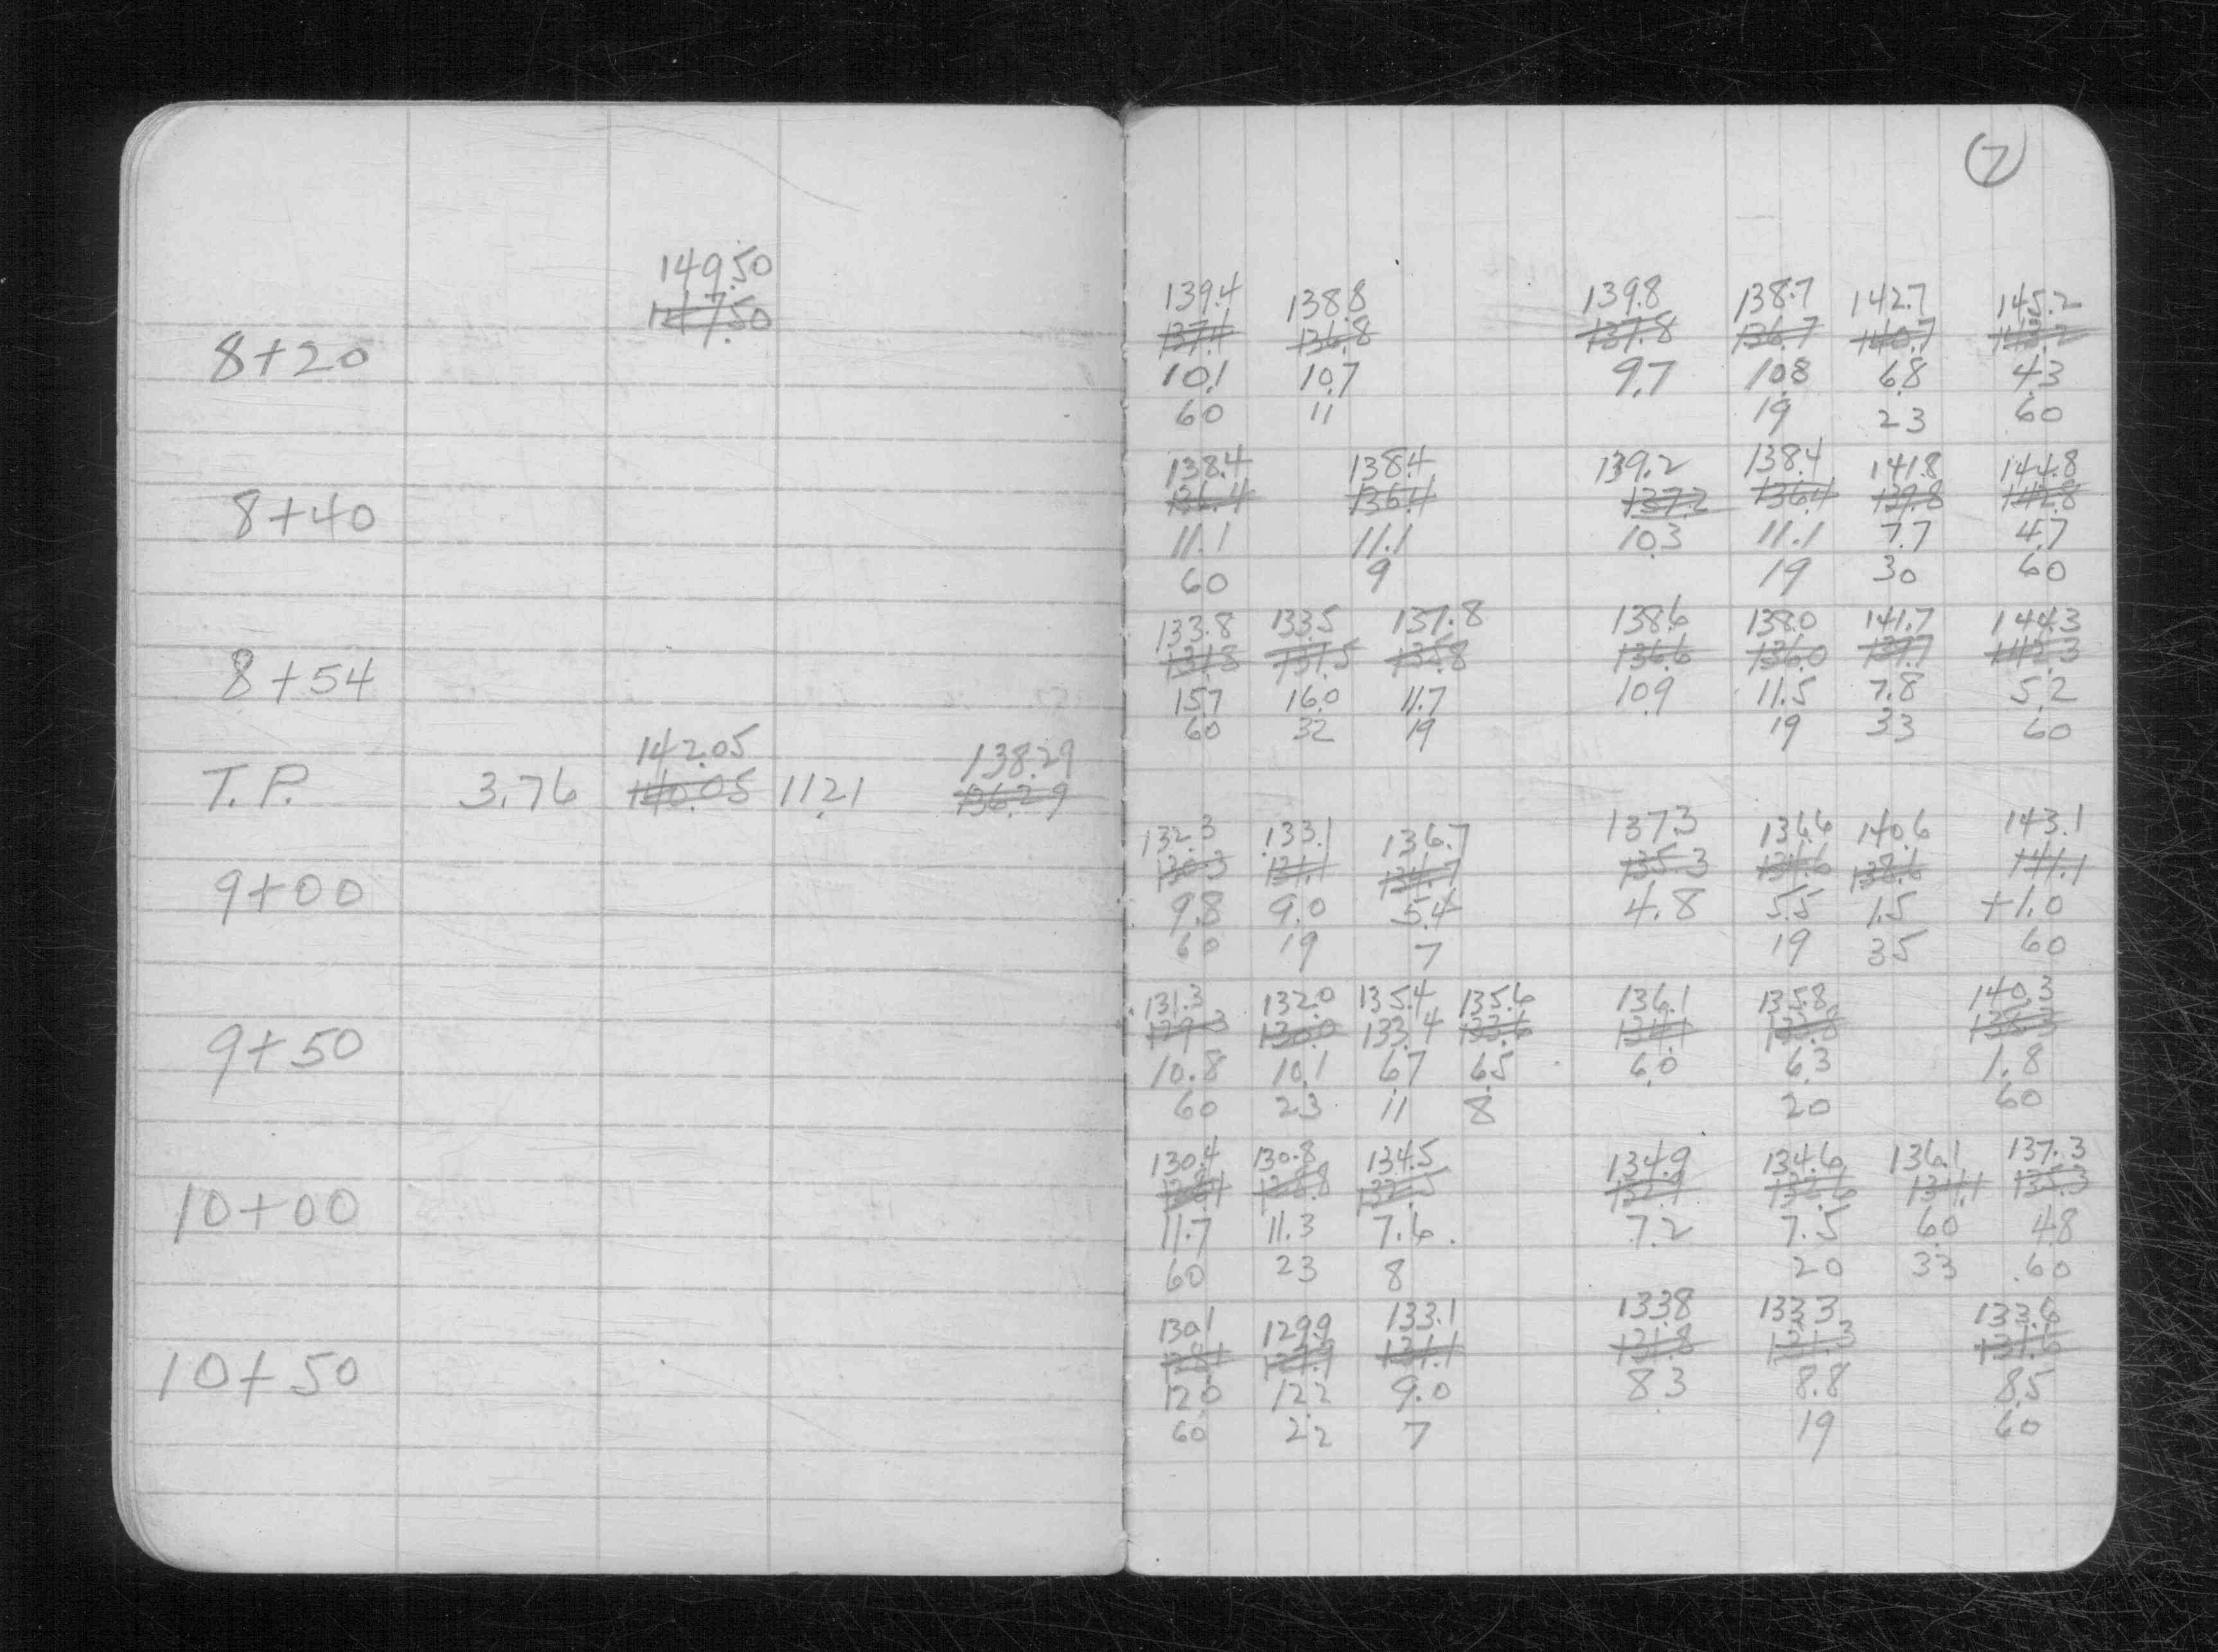 7
149.50
147.50
139.4 138.8 139.8 138.7 142.7 145.2
137.4 136.8 137.8 136.7 140.7 143.2
8+20 10.1 10.7 9.7 10.8 6.8 4.3
60 11 19 23 60
138.4 138.4 139.2 138.4 141.8 144.8
136.4 136.4 137.2 136.4 139.8 142.8
8+40 11.1 11.1 10.3 11.1 7.7 4.7
60 9 19 30 60
133.8 133.5 137.8 138.6 138.0 141.7 144.3
131.8 131.5 135.8 136.6 136.0 139.7 142.3
8+54 15.7 16.0 11.7 10.9 11.5 7.8 5.2
60 32 19 19 33 60
142.05 138.29
T.P. 3.76 140.05 11.21 136.29
132.3 133.1 136.7 137.3 136.6 140.6 143.1
130.3 131.1 134.7 135.3 134.6 138.6 141.1
9+00 9.8 9.0 5.4 4.8 5.5 1.5 +1.0
60 19 7 19 35 60
131.3 132.0 135.4 135.6 136.1 135.8 140.3
129.3 130.0 133.4 133.6 134.1 133.8 138.3
9+50 10.8 10.1 6.7 6.5 6.0 6.3 1.8
60 23 11 8 20 60
130.4 130.8 134.5 134.9 134.6 136.1 137.3
128.4 128.8 132.5 132.9 132.6 134.1 135.3
10+00 11.7 11.3 7.6 7.2 7.5 6.0 4.8
60 23 8 20 33 60
130.1 129.9 133.1 133.8 133.3 133.6
128.1 127.9 131.1 131.8 131.3 131.6
10+50 12.0 12.2 9.0 8.3 8.8 8.5
60 22 7 19 60